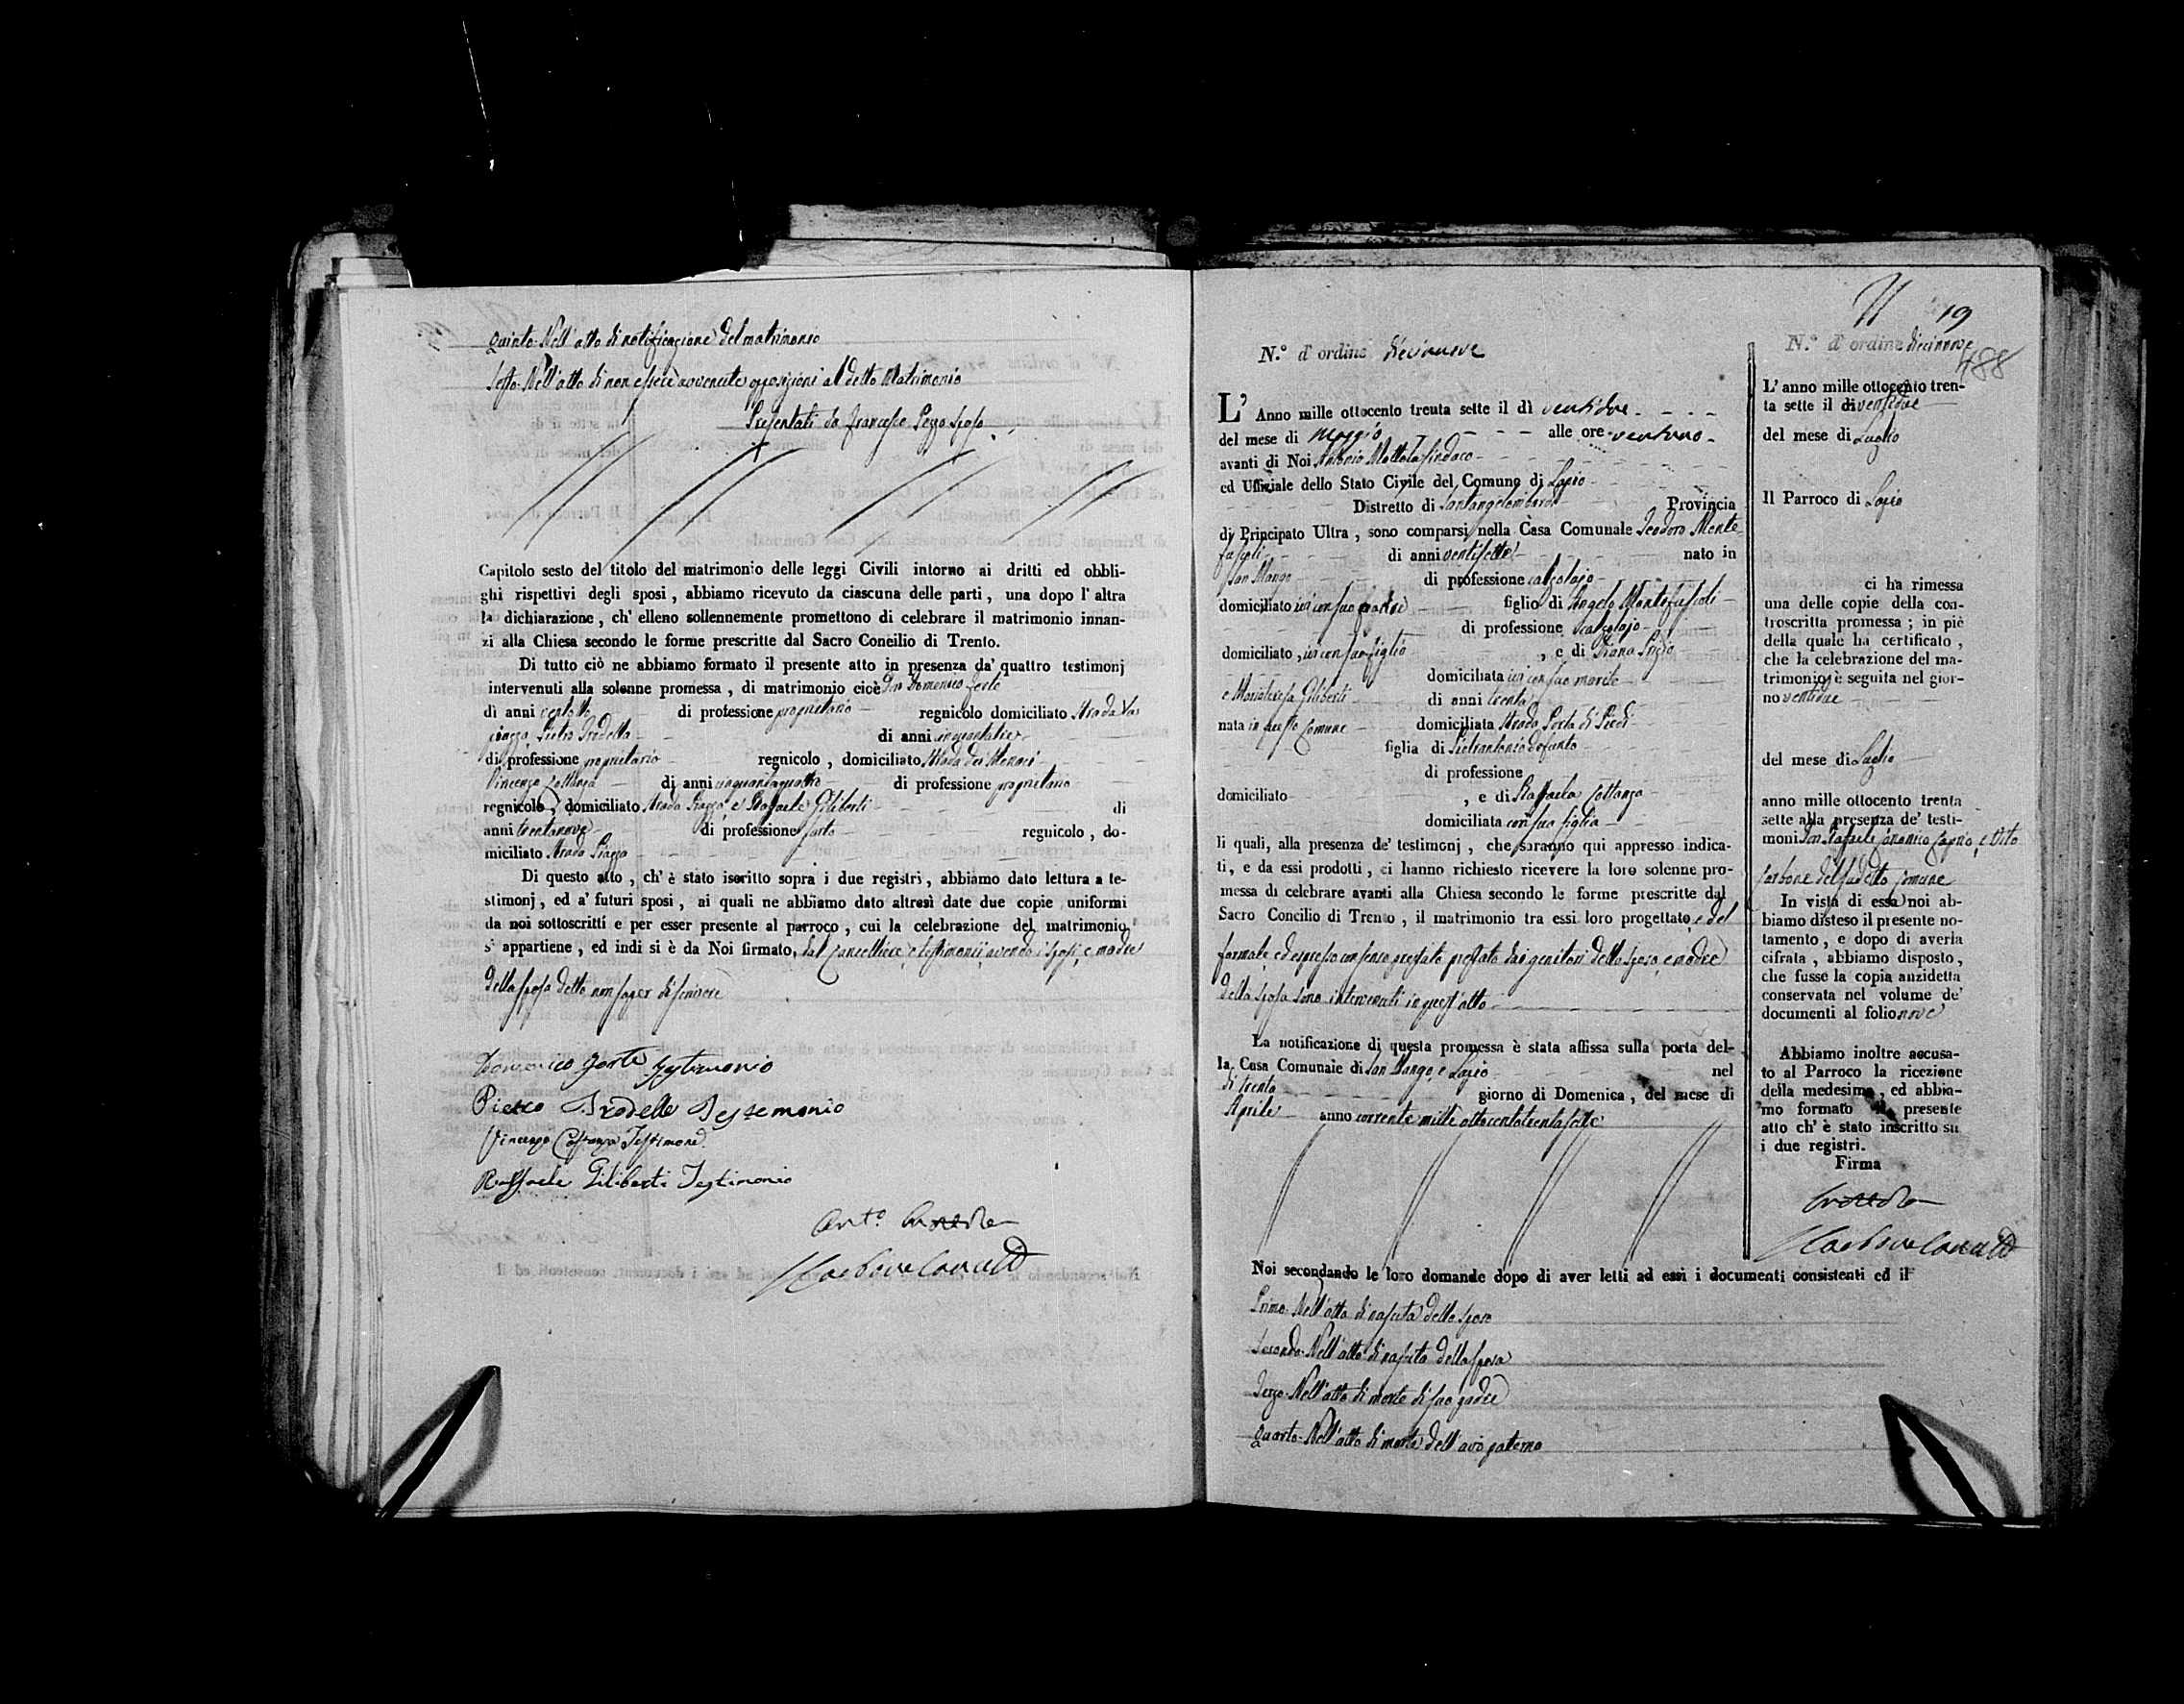 quinto. Nell'atto di notificazione del matrimonio
Sesto. Nell'atto di non essere avvenute opposizioni al detto Matrimonio
Presentati da Francesco Pezzo sposo
Capitolo sesto del titolo del matrimonio delle leggi Civili intorno ai dritti ed obbli-
ghi rispettivi degli sposi, abbiamo ricevuto da ciascuna delle parti, una dopo l'altra
la dichiarazione, ch'elleno sollennemente promettono di celebrare il matrimonio innan-
zi alla Chiesa secondo le forme prescritte dal Sacro Concilio di Trento.
Di tutto ciò ne abbiamo formato il presente atto in presenza da' quattro testimonj
intervenuti alla solenne promessa, di matrimonio cioè Don Domenico Forte
di anni di professione proprietario regnicolo domiciliato Strada
piazza Pietro Trodella di anni
di professione proprietario regnicolo, domiciliato Strada dei
Vincenzo Costanza di anni cinquantaquattro di professione proprietario
regnicolo, domiciliato Strada Piazza, e Raffaele Giliberti di
anni trentanove di professione sarto regnicolo, do-
miciliato Strada Piazza
Di questo atto, ch'è stato iscritto sopra i due registri, abbiamo dato lettura a te-
stimonj, ed a' futuri sposi, ai quali ne abbiamo dato altresì date due copie uniformi
da noi sottoscritti e per esser presente al parroco, cui la celebrazione del matrimonio
s'appartiene, ed indi si è da Noi firmato, dal Cancelliere, e testimonii, avendo i sposi, e madre
della sposa detto non saper di scrivere
Domenico Forte testimonio
Pietro Trodella Testemonio
Vincenzo Costanza Testimone
Raffaele Giliberti Testimonio
Ant.º
19
N.º d'ordine diecinove
488
N.º d'ordine diecinove
L'Anno mille ottocento trenta sette il dì ventidue
del mese di Maggio alle ore ventuno
avanti di Noi Antonio Mottola Sindaco
ed Uffiziale dello Stato Civile del Comune di Lapio
Distretto di Santangelolombardi Provincia
di Principato Ultra, sono comparsi nella Casa Comunale Teodoro Monte-
fuscoli di anni ventisette nato in
San Mango di professione calzolajo
domiciliato ivi con suo padre figlio di Angelo Montefuscoli
di professione scarpolajo
domiciliato, ivi con suo figlio, e di
domiciliata ivi con suo marito
e Mariateresa Giliberti di anni trenta
nata in questo Comune domiciliata Strada Porta di Piedi
figlia di Pietrantonio defunto
di professione
domiciliato, e di Raffaela Costanza
domiciliata con sua figlia
li quali, alla presenza de' testimonj, che saranno qui appresso indica-
ti, e da essi prodotti, ci hanno richiesto ricevere la loro solenne pro-
messa di celebrare avanti alla Chiesa secondo le forme prescritte dal
Sacro Concilio di Trento, il matrimonio tra essi loro progettato, e del
formale, ed espresso consenso prestato prestato dai genitori dello sposo, e madre
della sposa sono intervenuti in quest'atto
La notificazione di questa promessa è stata affissa sulla porta del-
la Casa Comunale di San Mango, e Lapio nel
dì trenta giorno di Domenica, del mese di
Aprile anno corrente mille ottocentotrentasette
Noi secondando le loro domande dopo di aver letti ad essi i documenti consistenti ed il
Primo. Nell'atto di nascita dello sposo
Secondo. Nell'atto di nascita della sposa
Terzo. Nell'atto di morte di suo padre
Quarto. Nell'atto di morte dell'avo paterno
L'anno mille ottocento tren-
ta sette il dì ventidue
del mese di Luglio
Il Parroco di Lapio
ci ha rimessa
una delle copie della con-
troscritta promessa; in piè
della quale ha certificato,
che la celebrazione del ma-
trimonio è seguita nel gior-
no ventidue
del mese di Luglio
anno mille ottocento trenta
sette alla presenza de' testi-
moni Don Raffaele Canonico Carpio, e Vito
Carbone del sudetto Comune
In vista di essa noi ab-
biamo disteso il presente no-
tamento, e dopo di averla
cifrata, abbiamo disposto,
che fusse la copia anzidetta
conservata nel volume de'
documenti al folio nove
Abbiamo inoltre accusa-
to al Parroco la ricezione
della medesima, ed abbia-
mo formato il presente
atto ch'è stato inscritto su
i due registri.
Firma